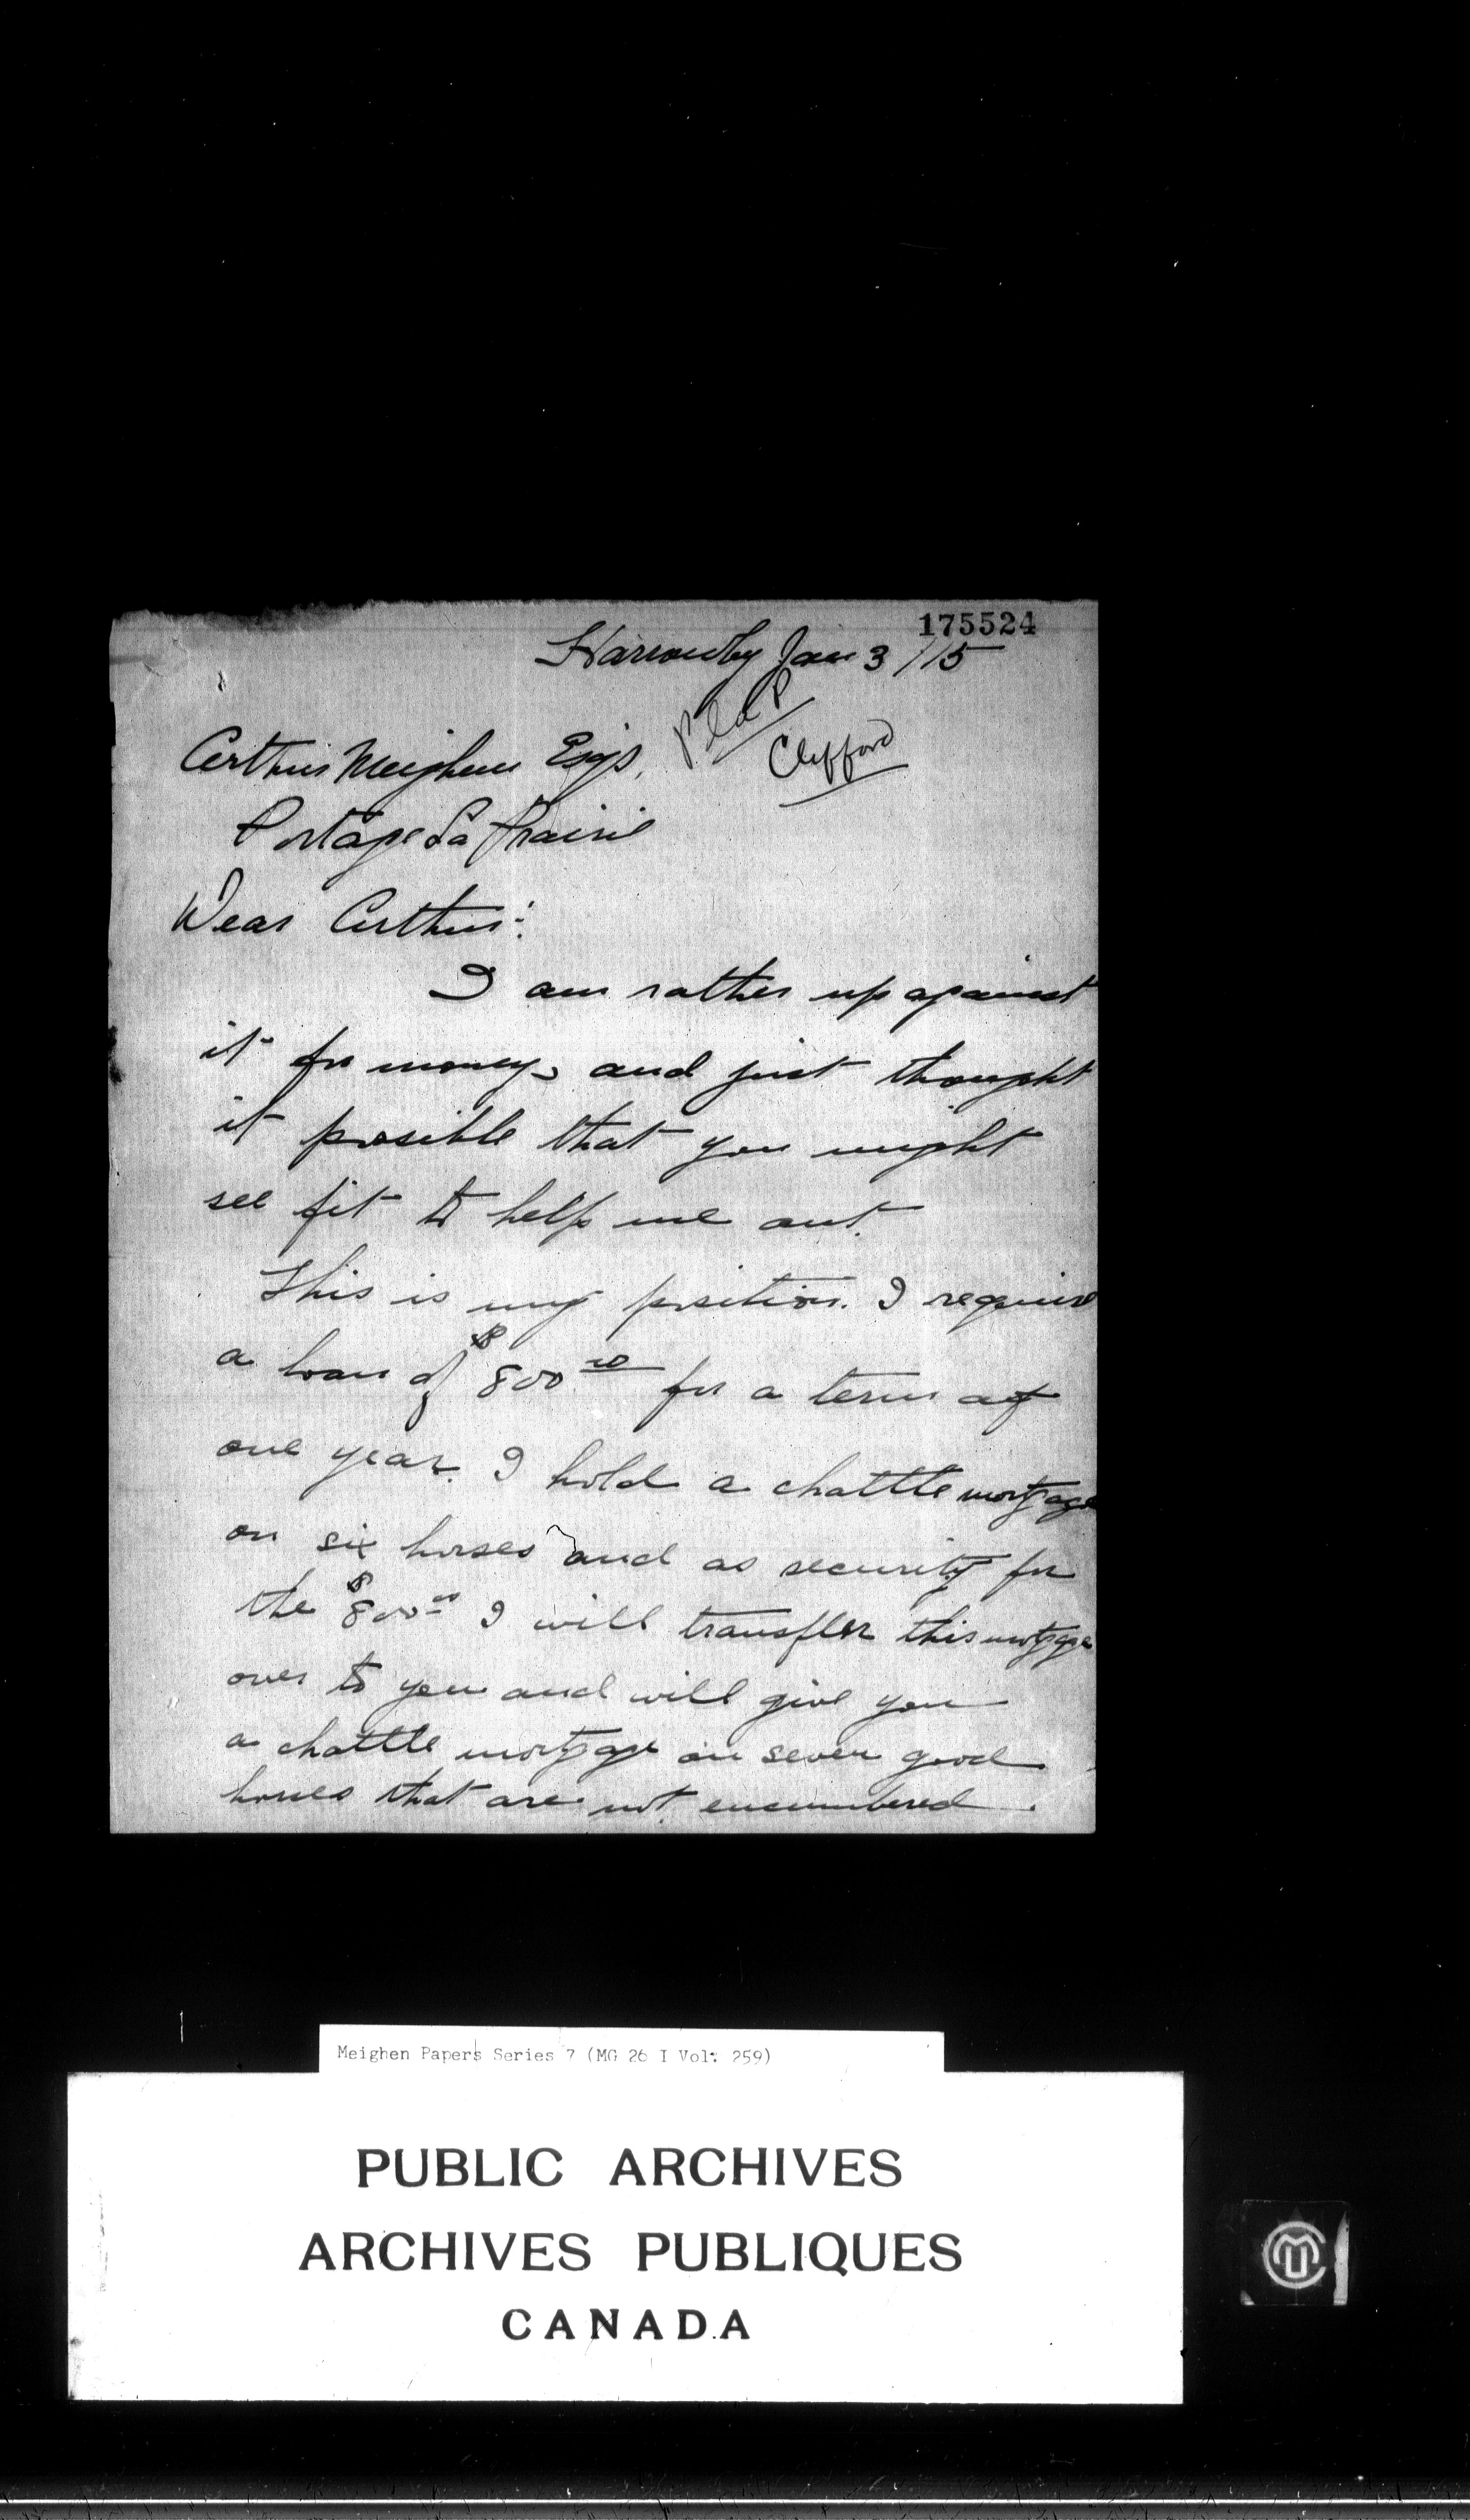 175524
Harrowby Jan 3/15
P. la P
Clifford
Arthur Meighen Esq.,
Portage La Prairie
Dear Arthur:
I am rather up against
it for money, and just thought
it possible that you might
see fit to help me out.
This is my position. I require
a loan of $800.00 for a term of
one year. I hold a chattle mortgage
on six horses and as security for
the $800.00 I will transfer this mortgage
over to you and will give you
a chattle mortgage on seven good
horses that are not encumbered.
Meighen Papers Series 7 (MG 26 I Vol: 259)
PUBLIC ARCHIVES
ARCHIVES PUBLIQUES
CANADA